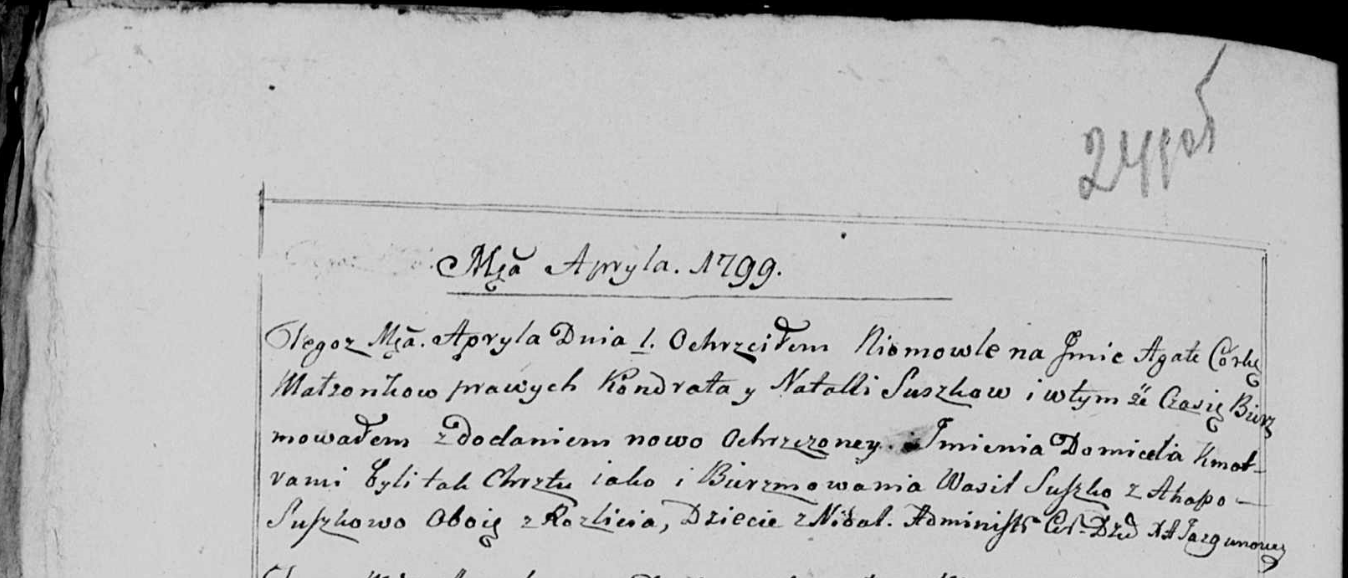 24 об
Mca Apryla. 1799.
Tegoz Mca. Apryla Dnia 1. Ochrzciłem Niemowle na Jmie Agate Córkę
Małzonkow prawych Kondrata y Natalli Suszkow i wtym że Czasię Bierz
mowałem z dodaniem nowo Ochrzczoney Jmienia Domicela Kmot-
rami byli tak Chrztu iako i Bierzmowania Wasil Suszko z Ahapo-
Suszkowo Oboię z Rozlicia, Dziecie z Administ